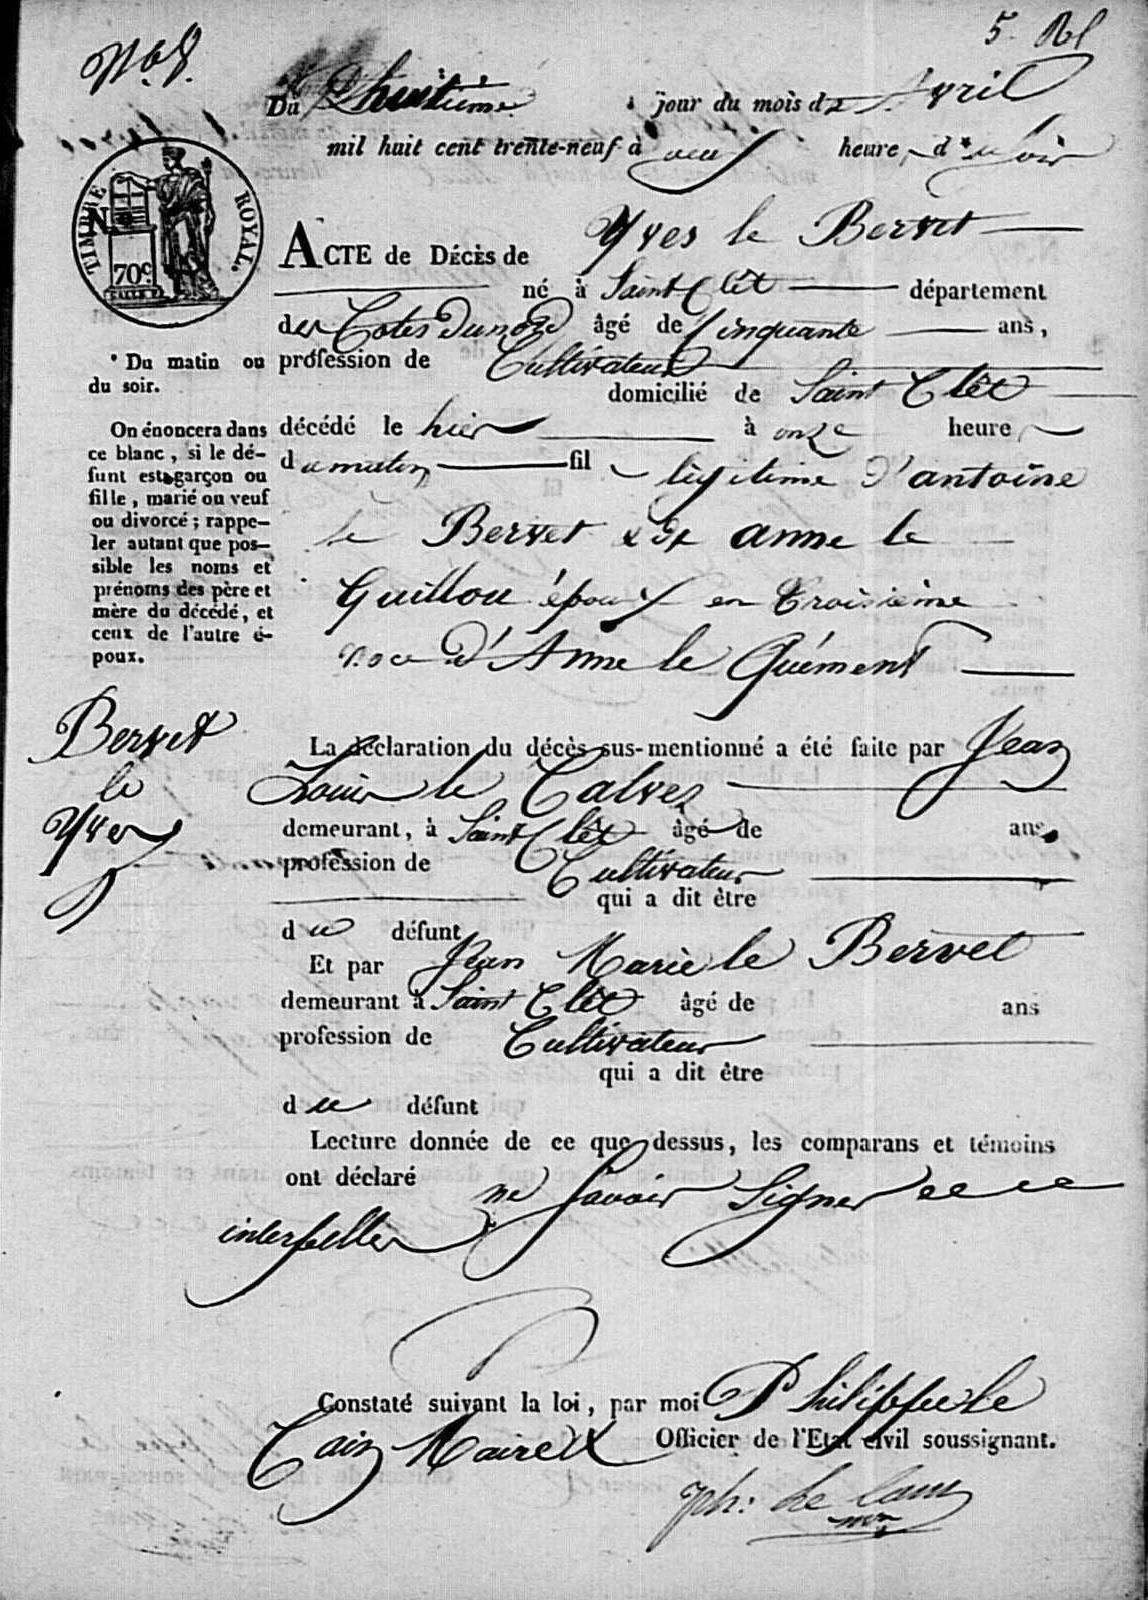 N.º 8.
5. Rl
Du huitième jour du mois de Avril
mil huit cent trente-neuf à heure, d* u soir
TIMBRE ROYAL.
70c.
ACTE de DÉCÈS de Yves le Bervet
né à Saint Clèt département
des Cotes du nord âgé de Cinquante ans,
* Du matin ou du soir.
profession de Cultivateur
domicilié de Saint Clèt
décédé le hier à onze heure
du matin fil légitime d'antoine
le Bervet & de anne le
Guillou époux en troisième
noce d'Anne le Quément
On énoncera dans
ce blanc, si le dé-
funt est garçon ou
fille, marié ou veuf
ou divorcé ; rappe-
ler autant que pos-
sible les noms et
prénoms des père et
mère du décédé, et
ceux de l'autre é-
poux.
Bervet
le
Yves
La déclaration du décès sus-mentionné a été faite par Jean
Louis le Calvez
demeurant, à Saint Clèt âgé de ans,
profession de Cultivateur
qui a dit être
du défunt
Et par Jean Marie le Bervet
demeurant à Saint Clèt âgé de ans
profession de Cultivateur
qui a dit être
du défunt
Lecture donnée de ce que dessus, les comparans et témoins
ont déclaré ne savoir Signer de ce
interpellés
Constaté suivant la loi, par moi Philippe le
Cain Maire & Officier de l'Etat civil soussigné.
ph: Le Cam